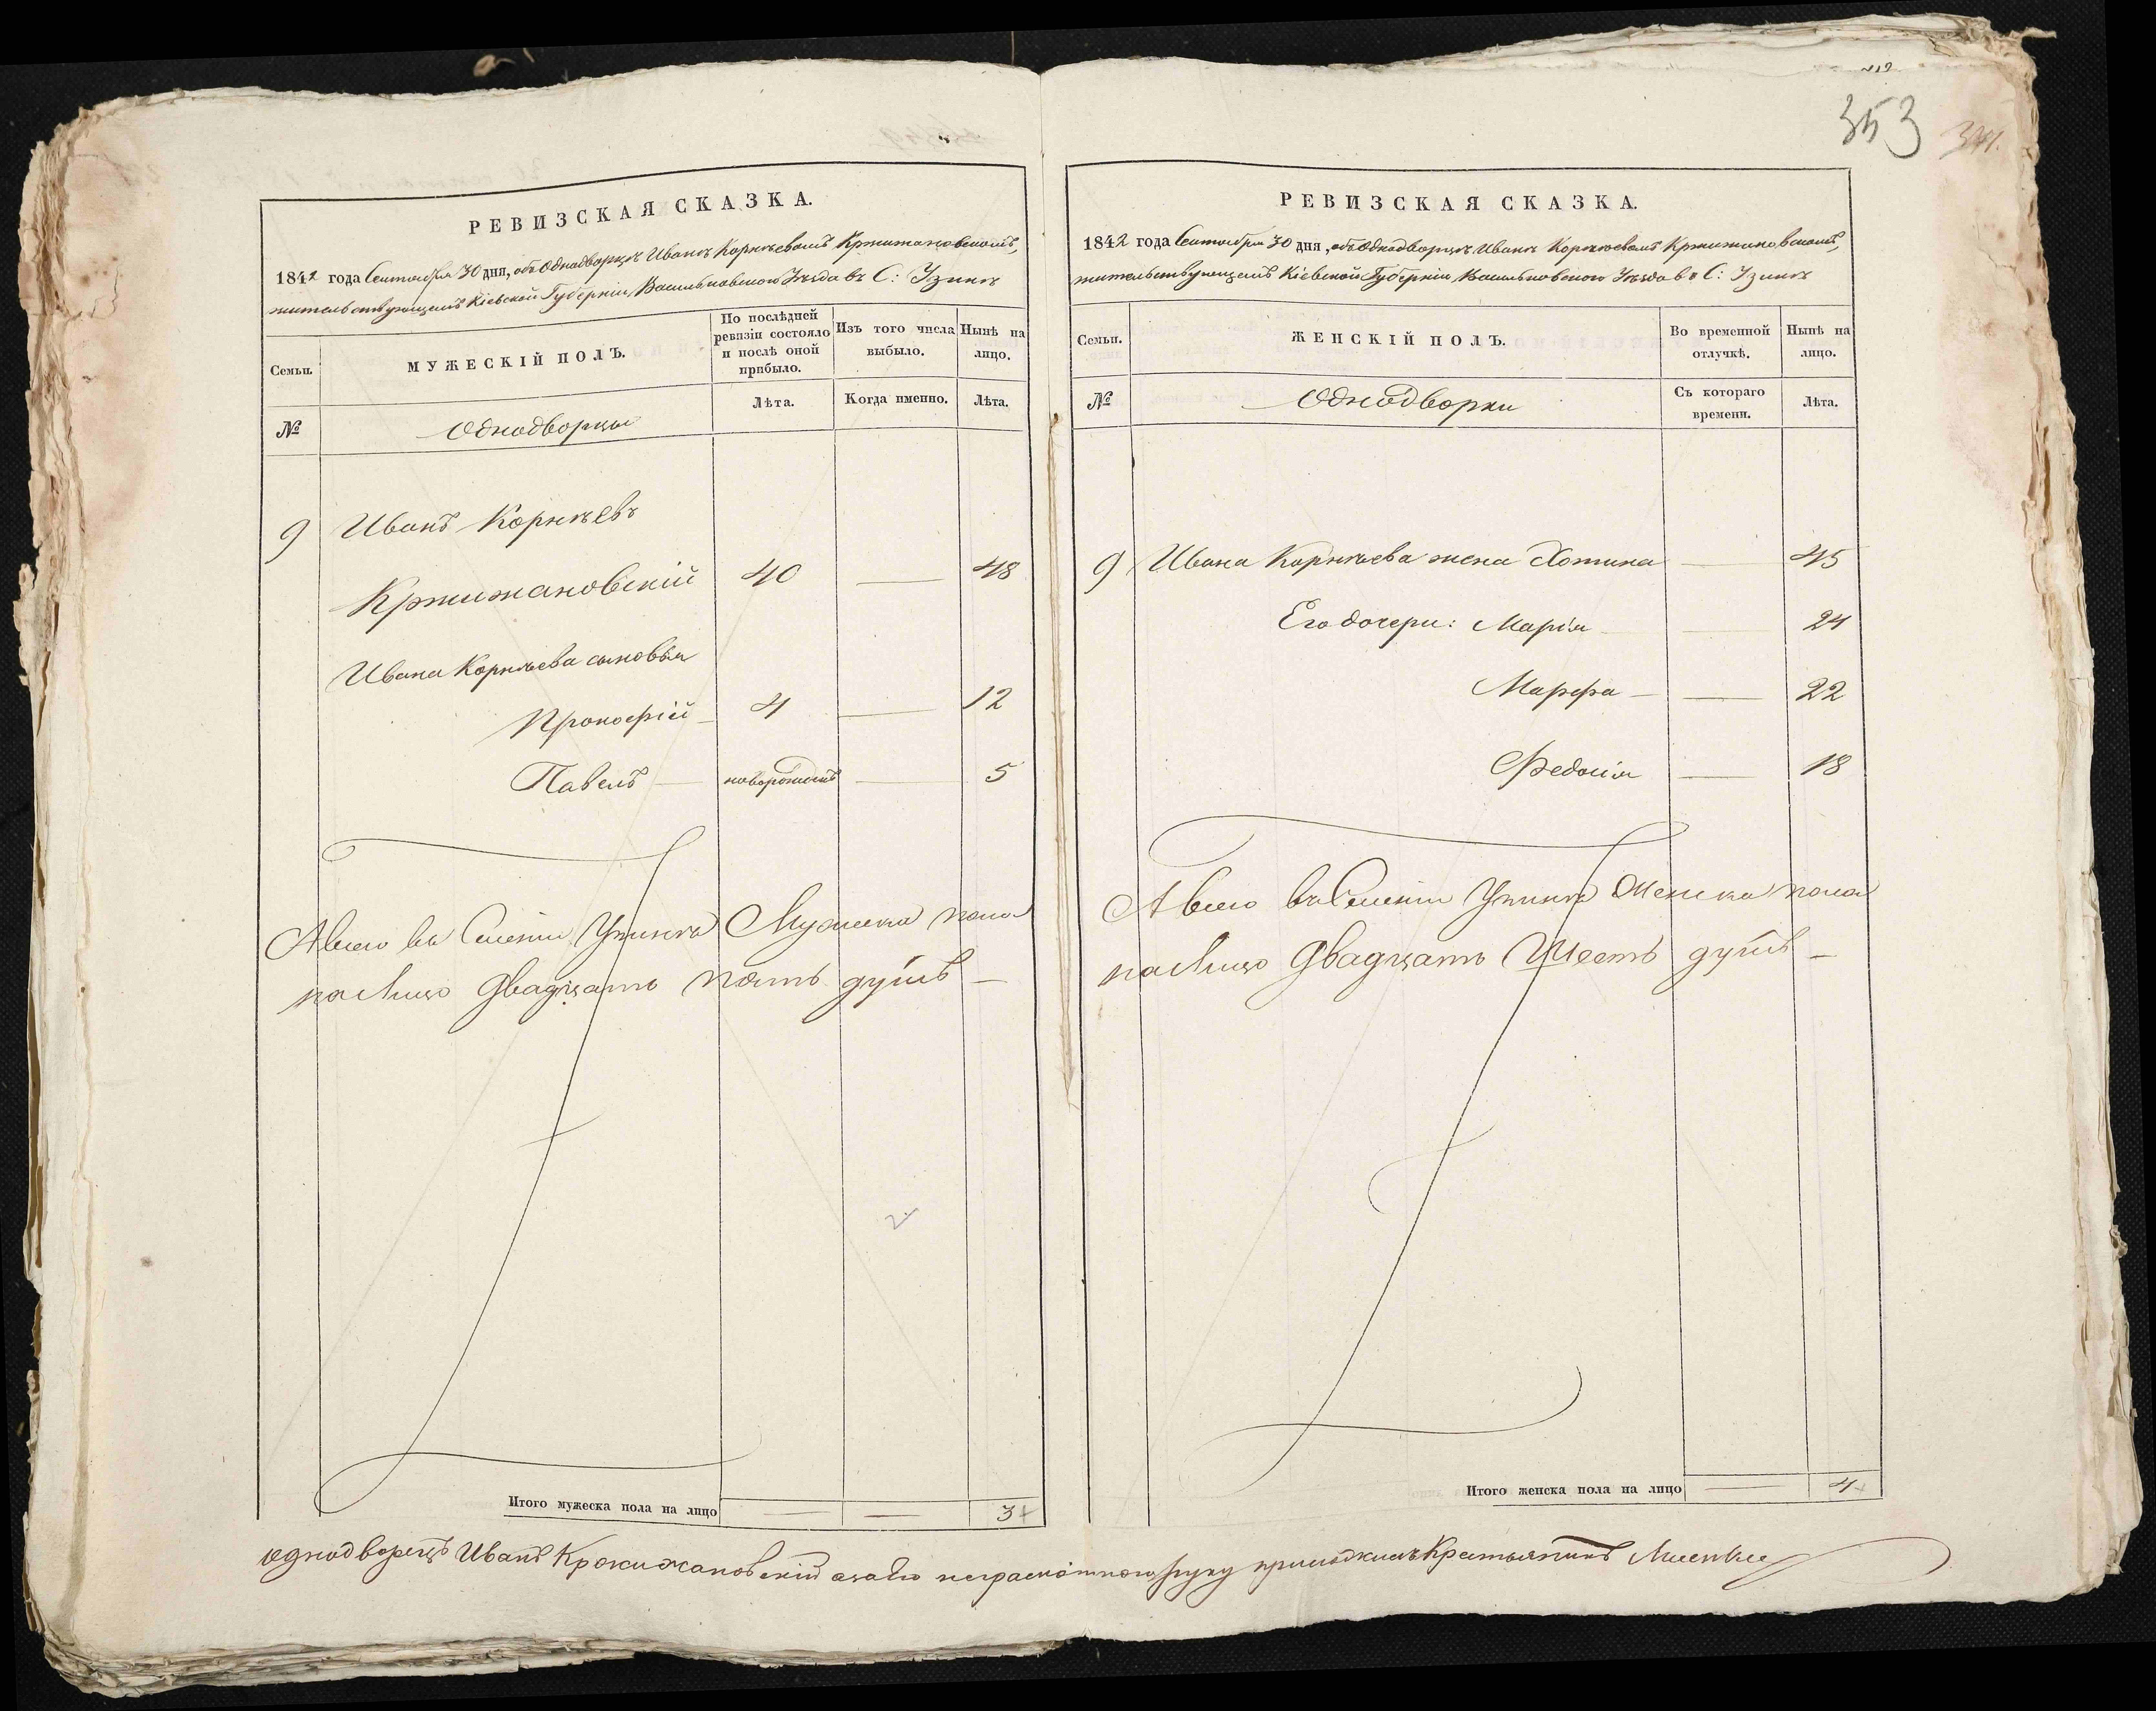 353
РЕВИЗСКАЯ СКАЗКА.
1842 года Сентября 30 дня, объ Однодворцѣ Иванѣ Корнѣевомъ Кржижановскомъ,
жительствующемъ Кіевской Губерніи Васильковского Уѣзда въ С: Узинѣ
Семьи.
МУЖЕСКІЙ ПОЛЪ.
По послѣдней ревизіи состояло и послѣ оной прибыло.
Изъ того числа выбыло.
Нынѣ на лицо.
№
Однодворцы
Лѣта.
Когда именно.
Лѣта.
9 Иванъ Корнѣевъ
Кржижановскій 40 — 48
Ивана Корнѣева сыновья
Прокофій — 4 — 12
Павелъ — новорожден — 5
А всего въ Селеніи Узинѣ Мужеска пола
на лицо двадцать пять душъ —
Итого мужеска пола на лицо — — 3
РЕВИЗСКАЯ СКАЗКА.
1842 года Сентября 30 дня, объ Однодворцѣ Иванѣ Корнѣевомъ Кржижановскомъ,
жительствующемъ Кіевской Губерніи Васильковского Уѣзда въ С: Узинѣ
Семьи.
ЖЕНСКІЙ ПОЛЪ.
Во временной отлучкѣ.
Нынѣ на лицо.
№
Однодворки
Съ котораго времени.
Лѣта.
9 Ивана Корнѣева жена Хотина — 45
Его дочери: Марія — 24
Марфа — — 22
Федосія — 18
А всего въ Селеніи Узинѣ Женска пола
на лицо двадцать Шесть душъ —
Итого женска пола на лицо — 4
Однодворецъ Иванъ Кржижановскій а за его неграмотного руку приложилъ Крестьянинъ